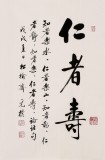 仁者壽
知者樂水仁者樂山知者動仁
者靜知者樂仁者壽論語句
戊戌夏